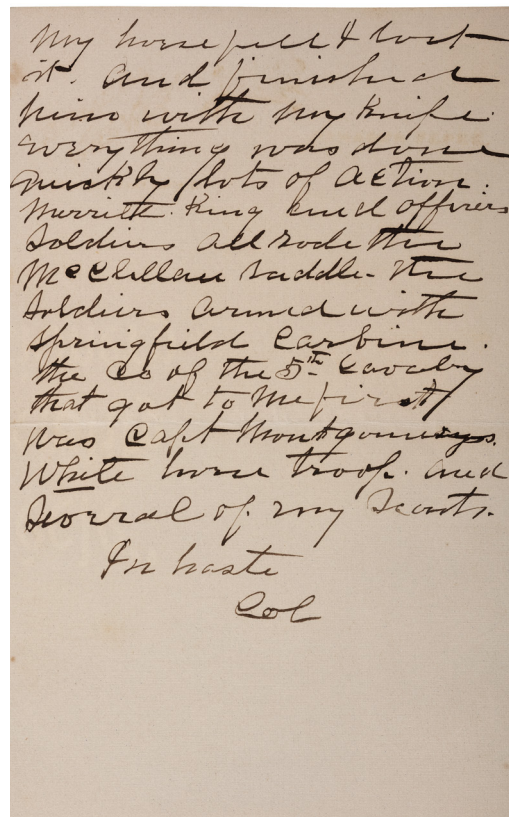 My horse fell & lost
it. and finished
him with my Knife
everything was done
quickly / lots of action.
Merritt. King and officers
Soldiers all rode the
McClellan Saddle - the
Soldiers armed with
Springfield Carbine.
the Co of the 5th Cavalry
that got to me first /
was Capt Montgomerys.
White horse troop. and
Several of my Scouts.
In haste
Col